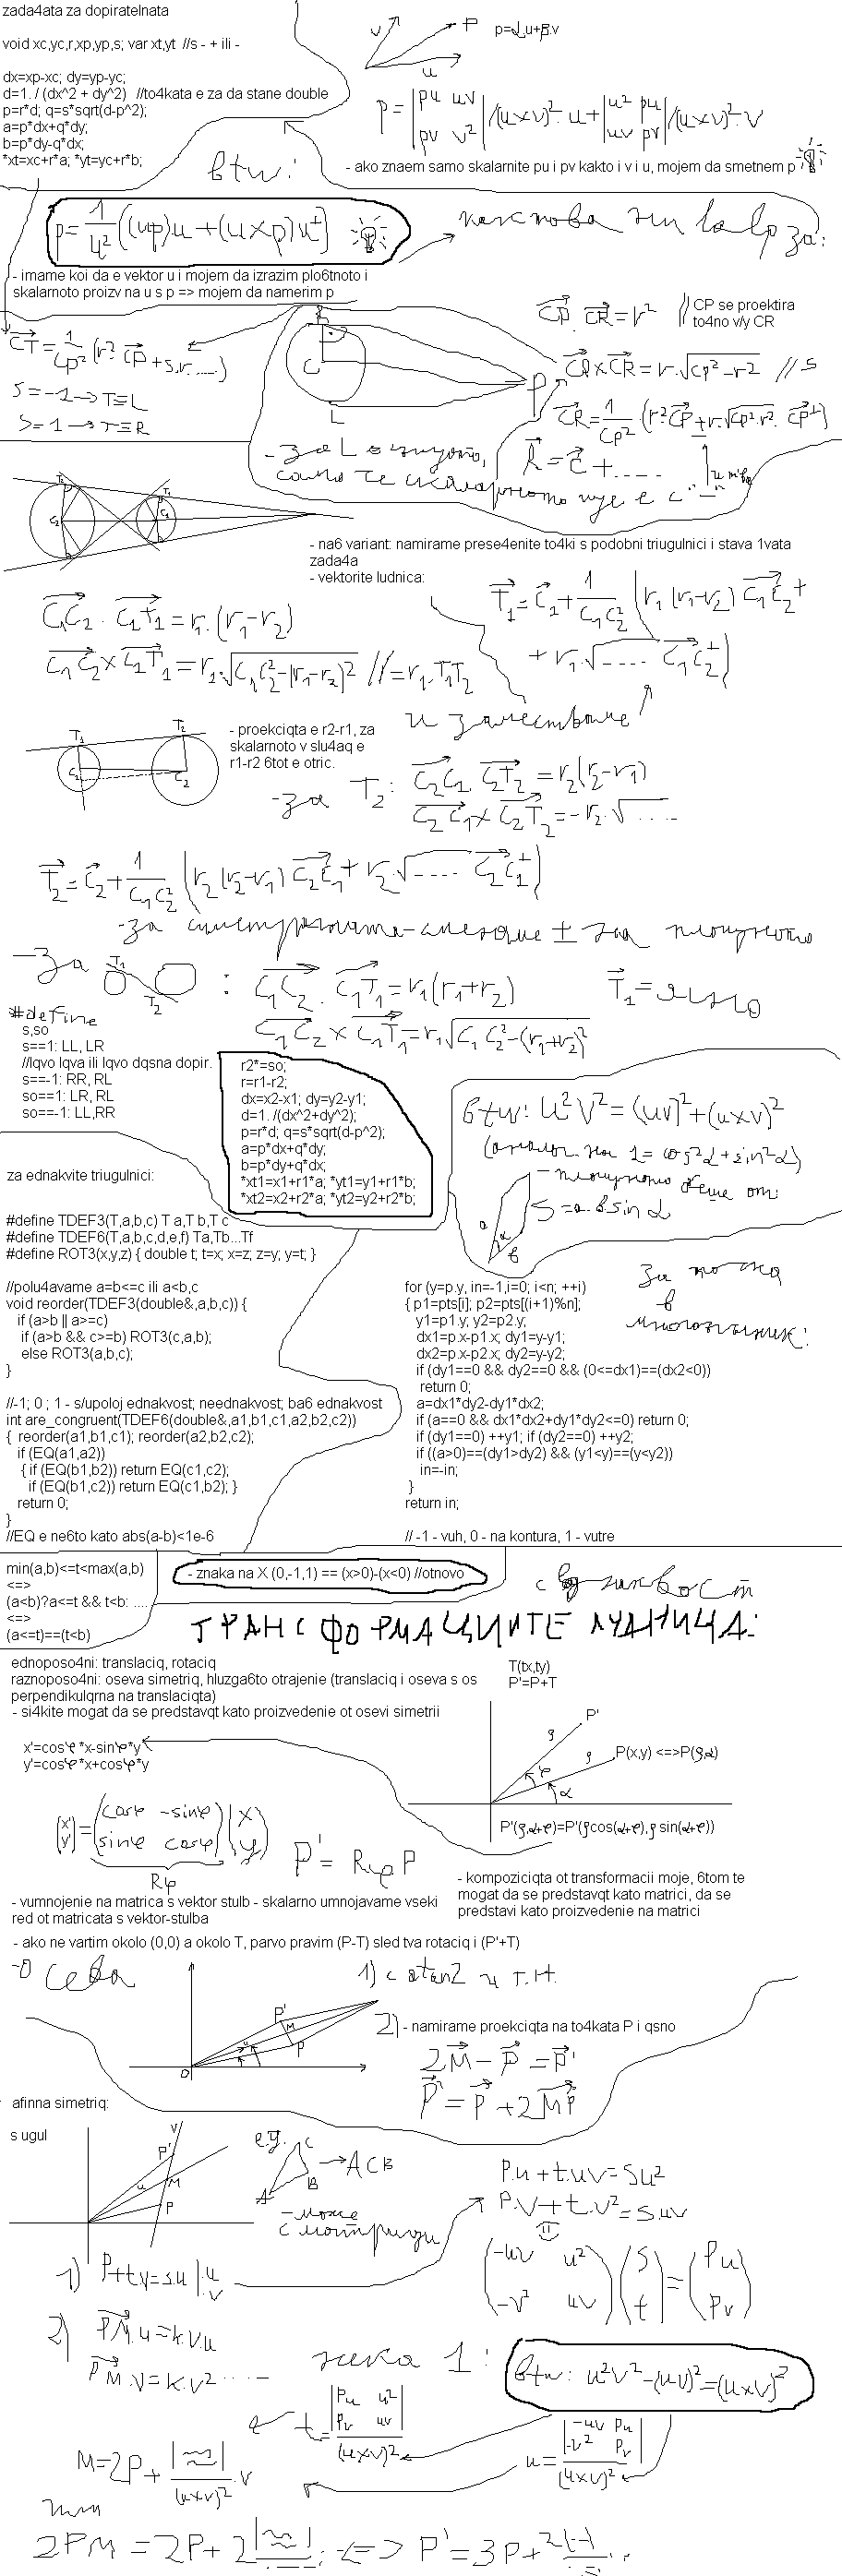 zada4ata za dopiratelnata
void xc,yc,r,xp,yp,s; var xt,yt //s - + ili -
dx=xp-xc; dy=yp-yc;
d=1. / (dx^2 + dy^2) //to4kata e za da stane double
p=r*d; q=s*sqrt(d-p^2);
a=p*dx+q*dy;
b=p*dy-q*dx;
*xt=xc+r*a; *yt=yc+r*b;
v
p
u
p=α.u+β.v
p = |pu uv| /(u×v)². u + |u² pu| /(u×v)². v
|pv v²| |uv pv|
- ako znaem samo skalarnite pu i pv kakto i v i u, mojem da smetnem p
btw:
p = 1/u² ((up)u + (u×p)u⊥)
- imame koi da e vektor u i mojem da izrazim plo6tnoto i
skalarnoto proizv na u s p => mojem da namerim p
CT = 1/CP² (r². CP + s.r. .....)
s = -1 → T≡L
s = 1 → T≡R
R
C
L
P
CP . CR = r² // CP se proektira
to4no v/y CR
CR = 1/CP² (r². CP ± r.√CP²-r². CP⊥)
R = C + ....
T2
T1
C2
C1
- na6 variant: namirame prese4enite to4ki s podobni triugulnici i stava 1vata
zada4a
- vektorite ludnica:
C1C2 . C1T1 = r1.(r1-r2)
C1C2 × C1T1 = r1.√C1C2²-(r1-r2)² // = r1.T1T2
T1 = C1 + 1/C1C2² (r1(r1-r2) C1C2 +
+ r1.√.... C1C2⊥)
и заместваме
T1
T2
C1
C2
- proekciqta e r2-r1, za
skalarnoto v slu4aq e
r1-r2 6tot e otric.
- за T2: C2C1 . C2T2 = r2(r2-r1)
C2C1 × C2T2 = -r2.√....
T2 = C2 + 1/C1C2² (r2(r2-r1) C2C1 + r2.√.... C2C1⊥)
- за
T1
T2
: C1C2 . C1T1 = r1(r1+r2)
C1C2 × C1T1 = r1√C1C2²-(r1+r2)²
T1 = ясно
#define
s,so
s==1: LL, LR
//lqvo lqva ili lqvo dqsna dopir.
s==-1: RR, RL
so==1: LR, RL
so==-1: LL,RR
r2*=so;
r=r1-r2;
dx=x2-x1; dy=y2-y1;
d=1. /(dx^2+dy^2);
p=r*d; q=s*sqrt(d-p^2);
a=p*dx+q*dy;
b=p*dy+q*dx;
*xt1=x1+r1*a; *yt1=y1+r1*b;
*xt2=x2+r2*a; *yt2=y2+r2*b;
btw: u²v² = (uv)² + (u×v)²
(аналог. на 1 = cos²α + sin²α)
S = a.b sin α
a
α
b
za ednakvite triugulnici:
#define TDEF3(T,a,b,c) T a,T b,T c
#define TDEF6(T,a,b,c,d,e,f) Ta,Tb...Tf
#define ROT3(x,y,z) { double t; t=x; x=z; z=y; y=t; }
//polu4avame a=b<=c ili a<b,c
void reorder(TDEF3(double&,a,b,c)) {
if (a>b || a>=c)
if (a>b && c>=b) ROT3(c,a,b);
else ROT3(a,b,c);
}
//-1; 0 ; 1 - s/upoloj ednakvost; neednakvost; ba6 ednakvost
int are_congruent(TDEF6(double&,a1,b1,c1,a2,b2,c2))
{ reorder(a1,b1,c1); reorder(a2,b2,c2);
if (EQ(a1,a2))
{ if (EQ(b1,b2)) return EQ(c1,c2);
if (EQ(b1,c2)) return EQ(c1,b2); }
return 0;
}
//EQ e ne6to kato abs(a-b)<1e-6
за точка
в
многоъгълник:
for (y=p.y, in=-1,i=0; i<n; ++i)
{ p1=pts[i]; p2=pts[(i+1)%n];
y1=p1.y; y2=p2.y;
dx1=p.x-p1.x; dy1=y-y1;
dx2=p.x-p2.x; dy2=y-y2;
if (dy1==0 && dy2==0 && (0<=dx1)==(dx2<0))
return 0;
a=dx1*dy2-dy1*dx2;
if (a==0 && dx1*dx2+dy1*dy2<=0) return 0;
if (dy1==0) ++y1; if (dy2==0) ++y2;
if ((a>0)==(dy1>dy2) && (y1<y)==(y<y2))
in=-in;
}
return in;
// -1 - vuh, 0 - na kontura, 1 - vutre
min(a,b)<=t<max(a,b)
<=>
(a<b)?a<=t && t<b: ....
<=>
(a<=t)==(t<b)
- znaka na X (0,-1,1) == (x>0)-(x<0) //otnovo
ТРАНСФОРМАЦИИТЕ ЛУДНИЦА:
ednoposo4ni: translaciq, rotaciq
raznoposo4ni: oseva simetriq, hluzga6to otrajenie (translaciq i oseva s os
perpendikulqrna na translaciqta)
- si4kite mogat da se predstavqt kato proizvedenie ot osevi simetrii
T(tx,ty)
P'=P+T
x'=cosφ*x-sinφ*y
y'=cosφ*x+cosφ*y
P'
ρ
ρ
P(x,y) <=>P(ρ,α)
φ
α
P'(ρ,α+φ)=P'(ρcos(α+φ),ρ sin(α+φ))
(x') = (cosφ -sinφ) (x)
(y') (sinφ cosφ) (y)
Rφ
P' = Rφ P
- kompoziciqta ot transformacii moje, 6tom te
mogat da se predstavqt kato matrici, da se
predstavi kato proizvedenie na matrici
- vumnojenie na matrica s vektor stulb - skalarno umnojavame vseki
red ot matricata s vektor-stulba
- ako ne vartim okolo (0,0) a okolo T, parvo pravim (P-T) sled tva rotaciq i (P'+T)
- Осева
1) с atan2 и т.н.
P'
M
u
P
O
2) - namirame proekciqta na to4kata P i qsno
2M - P = P'
P' = P + 2MP
afinna simetriq:
s ugul
v
P'
u
M
P
e.g.
C
B
A
→ ACB
- може
с матрици
P.u + t.uv = su²
P.v + t.v² = s.uv
(-uv u²) (s) = (Pu)
(-v² uv) (t) (Pv)
1) P+tv=s.u |.u
.v
2) PM.u = k.v.u
PM.v = k.v² ....
нека 1:
btw: u²v²-(uv)²=(u×v)²
t = |Pu u²|
|Pv uv|
(u×v)²
u = |-uv Pu|
|-v² Pv|
(u×v)²
M = 2P + |≈| .v
(u×v)²
2PM = 2P + 2 |≈| ... <=> P' = 3P + 2|-| ..